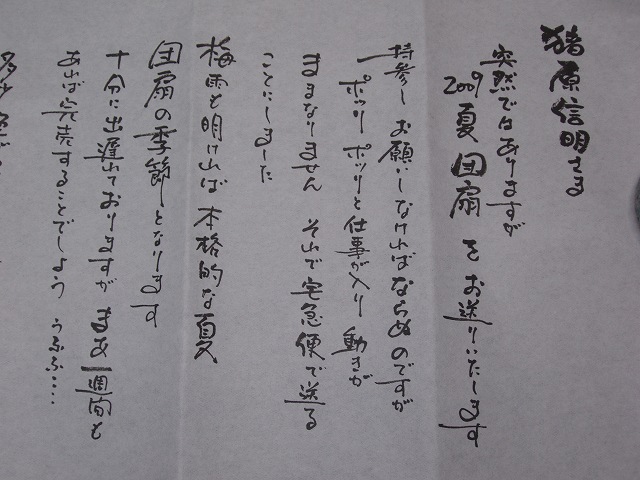 猪原信明さま
突然ではありますが
2009夏 団扇 を お送りいたします
持参し お願いしなければならぬのですが
ポツリ ポツリと仕事が入り 動きが
ままなりません それで宅急便で送る
ことにしました
梅雨も明ければ 本格的な夏
団扇の季節となります
十分に出遅れておりますが まあ一週間も
あれば完売することでしょう うふふ・・・・